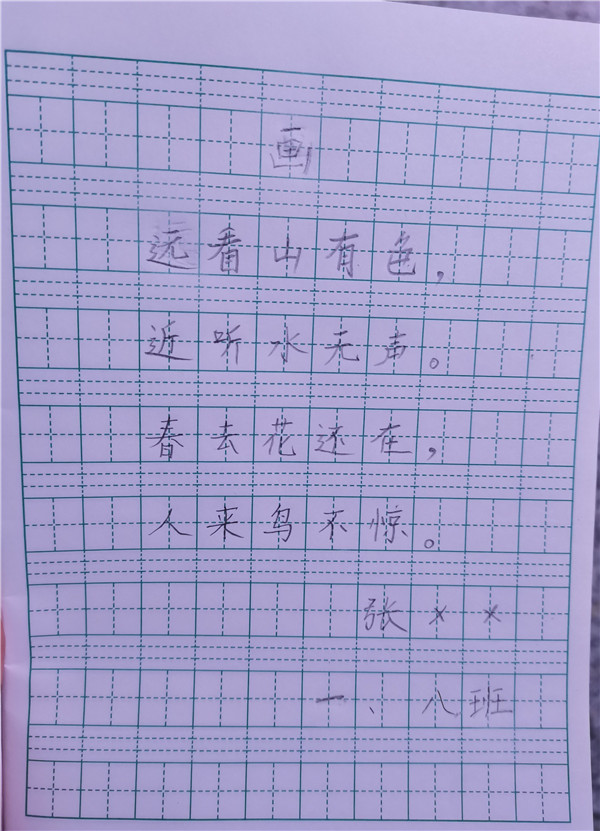 画
远看山有色，
近听水无声。
春去花还在，
人来鸟不惊。
张××
一、八班